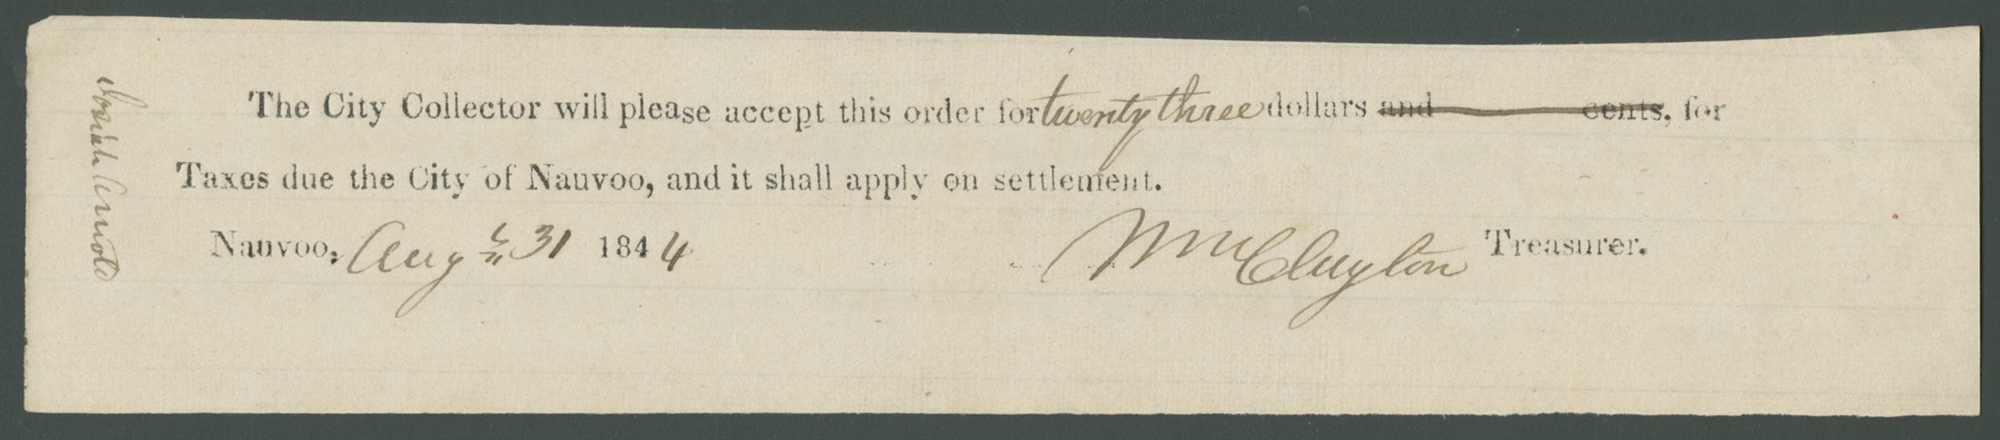 The City Collector will please accept this order for twenty three dollars and cents, for
Taxes due the City of Nauvoo, and it shall apply on settlement.
Nauvoo, Augt 31 1844 Wm Clayton Treasurer.
Josiah Arnold